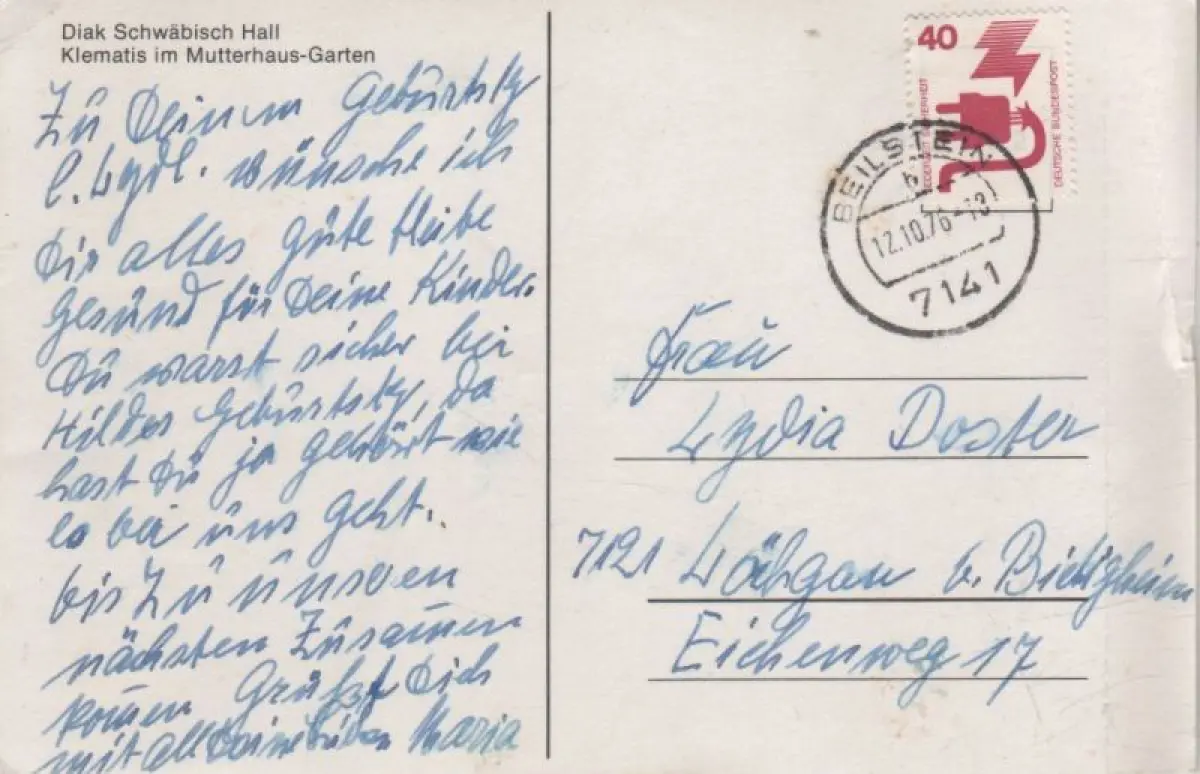 Diak Schwäbisch Hall
Klematis im Mutterhaus-Garten
Zu Deinem Geburtstg
l. Lydl. wünsche ich
Dir alles Gute bleibe
Gesund für Deine Kinder.
Du warst sicher bei
Hildes Geburtstg, da
hast Du ja gehört wie
es bei uns geht.
bis Zu unseren
nächsten Zusamen
komen Grüßt Dich
mit all Deine lieben Maria
40
JEDERZEIT SICHERHEIT
DEUTSCHE BUNDESPOST
BEILSTEIN
b
12.10.76-18
7141
Frau
Lydia Doster
7121 Löchgau b. Bietigheim
Eichenweg 17